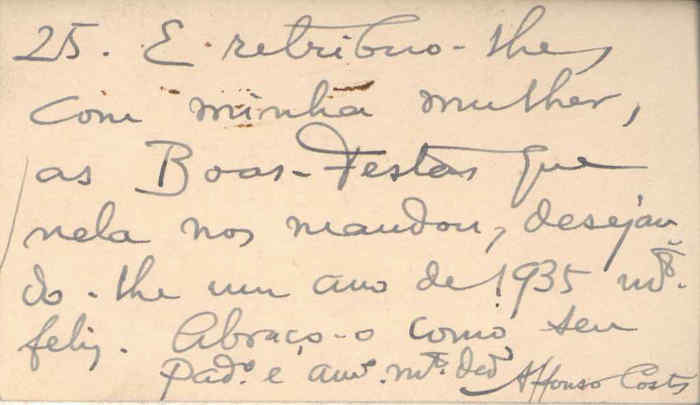 25. E retribuo-lhe,
com minha mulher,
as Boas-Festas que
nela nos mandou, desejan
do-lhe um ano de 1935 m.to
feliz. Abraço-o como seu
Pad.o e am.o m.to ded.o Affonso Costa